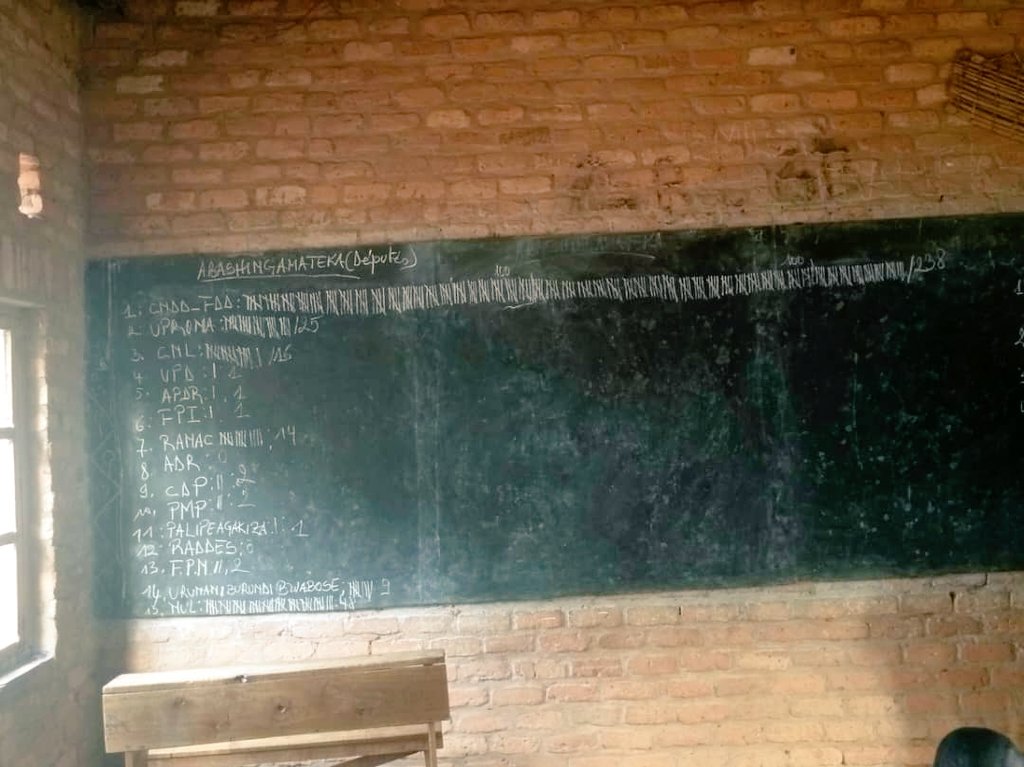 ABASHINGAMATEKA (Députés)
100
100
1. CNDD_FDD: /238
2. UPRONA: /25
3. CNL: /16
4. UPD: | 1
5. APDR: | . 1
6. FPI: | 1
7. RANAC : 14
8. ADR : 0
9. CDP: || : 2
10. PMP: || : 2
11. PALIPE AGAKIZA: | : 1
12. RADDES: 0
13. FPN ||, 2
14. URUMURI BURUNDI BWABOSE; 9
15. NUL: